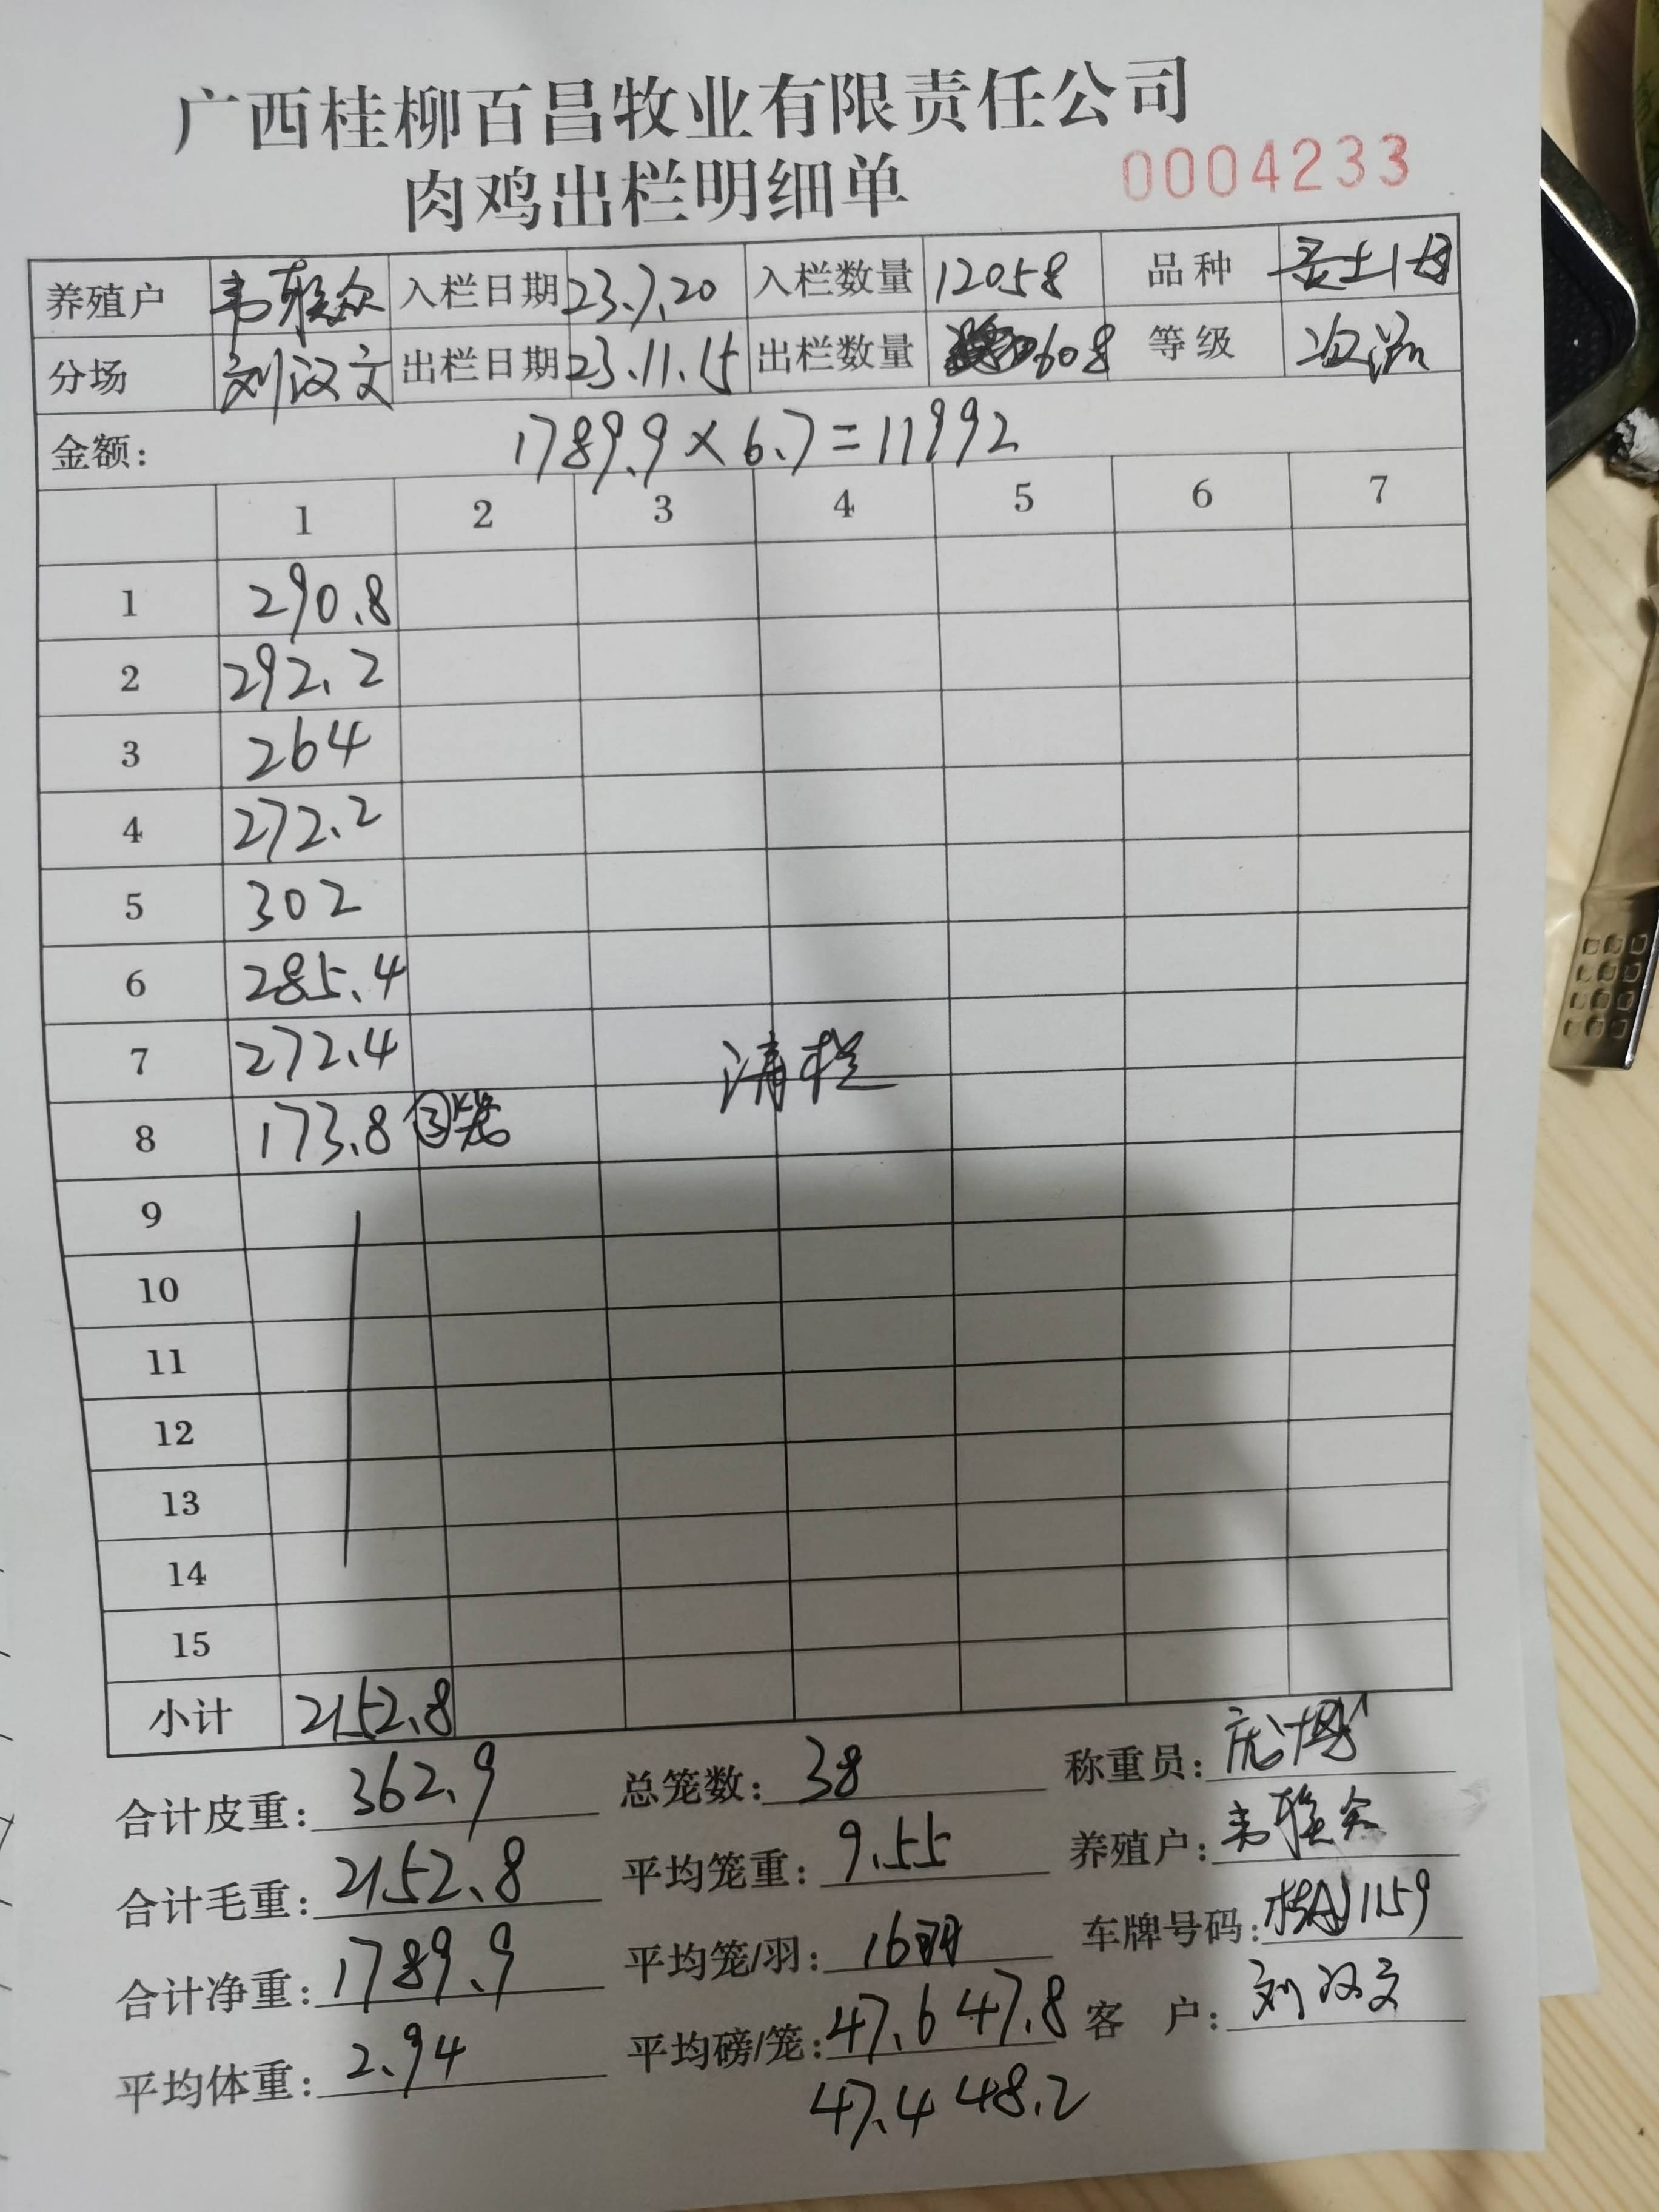 广西桂柳百昌牧业有限责任公司
肉鸡出栏明细单
0004233
养殖户 韦雅众 入栏日期 23.7.20 入栏数量 12058 品种
分场 刘汉文 出栏日期 23.11.15 出栏数量 608 等级
金额: 1789.9×6.7=11992
1 2 3 4 5 6 7
1 290.8
2 292.2
3 264
4 272.2
5 302
6 285.4
7 272.4 清栏
8 173.8 ③笼
9
10
11
12
13
14
15
小计 2152.8
合计皮重: 362.9 总笼数: 38 称重员:
合计毛重: 2152.8 平均笼重: 9.55 养殖户: 韦雅众
合计净重: 1789.9 平均笼/羽: 16羽 车牌号码:
平均体重: 2.94 平均磅/笼: 47.6 47.8 客 户: 刘汉文
47.4 48.2